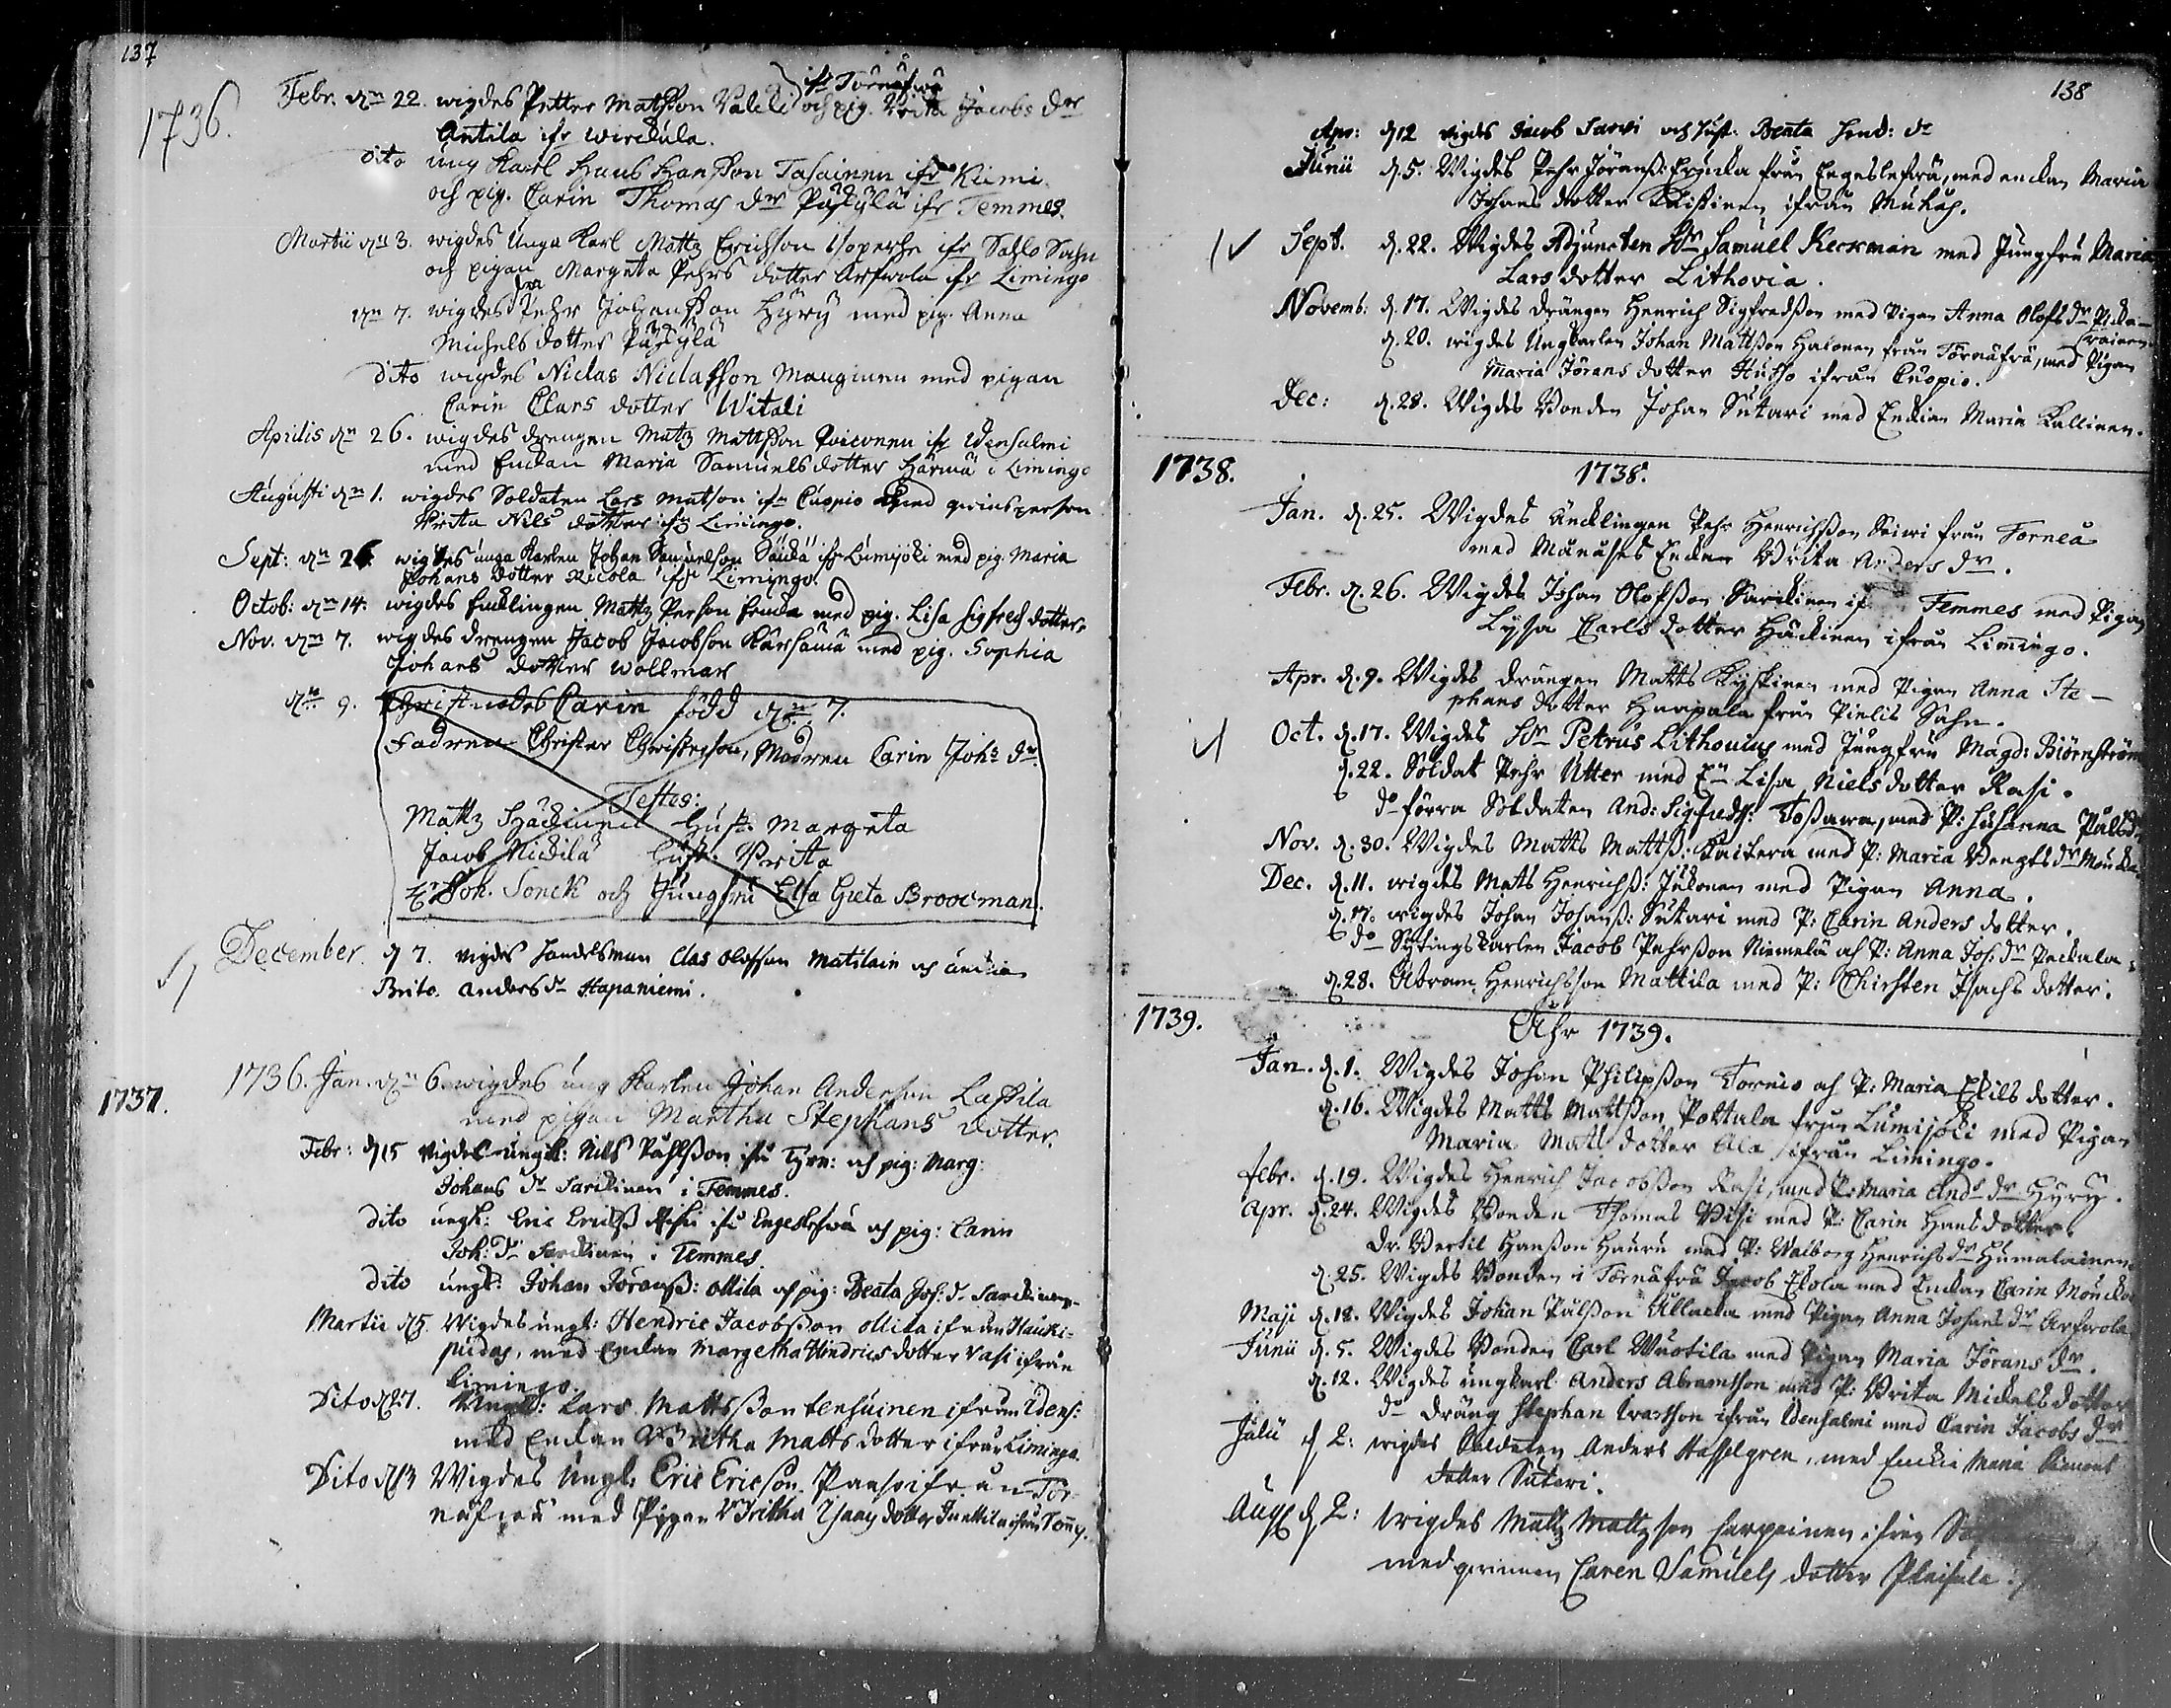 137
1736.
Febr. dn 22. wigdes Petter Matsson Valeki ifr Törnäfwa och pig. Brita Jacobs dr
Antila ifr Wirckula.
dito ung Karl Hans Hansson Tasainen ifr Kiimi
och pig. Carin Thomas dr Päykylä ifr Temmes.
Martii dn 3. wigdes Unga Karl Mattz Erichson Isoperhe ifr Sahlo Sochn
och pigan Margeta Pehrs dotter Arfwola ifr Limingo
dn 7. wigdes Pehr Johansson Hyry med pig. Anna
Michels dotter Päykylä
dito wigdes Niclas Niclasson Manginen med pigan
Carin Clars dotter Witali
Aprilis dn 26. wigdes drengen Matz Mattsson Toivonen ifr Idensalmi
med Enckan Maria Samuels dotter Härmä i Limingo
Augusti dn 1. wigdes Soldaten Lars Matson ifr Cuopio med qwinsperson
Brita Nils dotter ifr Limingo.
Sept: dn 26. wigdes unga Karlen Johan Samuelson Säukä ifr Lumijoki med pig. Maria
Johans dotter Nicola ifr Limingo.
Octob: dn 14. wigdes Encklingen Mattz Person Fruda med pig. Lisa Sigfreds dotter.
Nov. dn 7. wigdes drengen Jacob Jacobson Kärsämä med pig. Sophia
Johans dotter Wollmar
dn 9. Christnades Carin född dn 7.
Fadren Christer Christersson, Modren Carin Johs dr
Testes:
Mattz Häckinen Hust. Margeta
Jacob Nickilä Hust. Brita
Hr Joh. Sonck och Jungfru Elsa Greta Broocman.
December. d 7. vigdes Handelsman Clas Olofsson Matilain och änckia
Brito. Anders dr Hapaniemi.
1737.
1736. Jan. dn 6. wigdes ung Karlen Johan Anderson Lassila
med pigan Martha Stephans dotter.
Febr: d 15 vigdes ungk: Nils Påhlsson ifr Tyrn: och pig: Marg:
Johans dr Sarckinen i Temmes.
dito ungk: Eric Ericss: ifr Engeslefwä och pig: Carin
Joh: dr Sarckinen i Temmes.
dito ungk: Johan Jöranss: Ollila och pig: Beata Joh: dr Sarckinen
Martii d 5. Wigdes ungk: Hendric Jacobsson Ollila ifrån Hauki-
pudas, med Enckan Margetha Hindrics dotter Vasi ifrån
Limingo.
Dito d 27. Ungk: Lars Mattsson Lensuinen ifrån Idens:
med Enckan Britha Matts dotter ifrån Liminga.
Dito d 13 Wigdes Ungk. Eric Ericson ifrån Tör-
näfwä med Pigan Britha Isaacs dotter ifrån Temes.
138
Apr: d 12 vigdes Jacob Sarvi och Hust: Beata Hend: dr
Junii d. 5. Wigdes Pehr Jöranss: Frucka från Engeslefwä, med enckan Maria
Johans dotter Kaissinen ifrån Muhås.
Sept. d. 22. Wigdes Adjuncten Hr Samuel Keckman med Jungfru Maria
Lars dotter Lithovia.
Novemb: d. 17. Wigdes drängen Henrich Sigfredsson med Pigan Anna Olofs dr Picka-
rainen
d. 20. wigdes Ungkarlen Johan Mattsson Halonen från Törnäfrä, med Pigan
Maria Jörans dotter Hutho ifrån Cuopio.
Dec: d. 28. Wigdes Bonden Johan Sutari med Enckian Maria Kallinen.
1738.
1738.
Jan. d. 25. Wigdes Äncklingen Pehr Henrichsson Soiwi från Torneå
med Månåses Enckan Brita Anders dr.
Febr. d. 26. Wigdes Johan Olofsson Sarckinen if Temmes med Pigan
Lysa Carls dotter Häckinen ifrån Limingo.
Apr. d. 9. Wigdes drängen Matts Kyskinen med Pigan Anna Ste-
phans dotter Haapala från Pielis Sohn.
Oct. d. 17. Wigdes Hr Petrus Lithovius med Jungfru Magd: Biörnström
d. 22. Soldat Pehr Utter med En Lisa Niels dotter Rasi.
do förra Soldaten And: Sigfredss: Tossawa, med P: Susanna Påls dr
Nov. d. 30. Wigdes Matts Mattss: Kaikera med P: Maria Bengts dr Moucka
Dec. d. 11. wigdes Mats Henrichss: Jukonen med Pigan Anna.
d. 17. wigdes Johan Johanss: Sutari med P: Carin Anders dotter.
do Sytingskarlen Jacob Pehrsson Niemelä och P: Anna Joh: dr Peckala
d. 28. Abram Henrichsson Mattila med P: Chirsten Isachs dotter.
1739.
Åhr 1739.
Jan. d. 1. Wigdes Johan Philipsson Tornio och P: Maria Eskils dotter.
d. 16. Wigdes Matts Mattsson Pottala från Lumijoki med Pigan
Maria Matts dotter Ala ifrån Limingo.
Febr. d. 19. Wigdes Henrich Jacobsson Rasi, med P: Maria Ands dr Hyry.
Apr. d. 24. Wigdes Bonden Thomas Pisi med P: Carin Hans dotter
Dr. Bertil Hansson Hauru med P: Walborg Henrichs dr Humalainen
d. 25. Wigdes Bonden i Törnäfrä Jacob Eskola med Enckan Carin Moucka
Maji d. 18. Wigdes Johan Pålsson Ullacka med Pigan Anna Johans dr Arfwola
Junii d. 5. Wigdes Bonden Carl Wuotila med Pigan Maria Jörans dr.
d. 12. Wigdes ungkarl Anders Abramsson med P: Brita Mickels dotter
do Dräng Stephan Iwarsson ifrån Idensalmi med Carin Jacobs dr
Julii d 2: wigdes Soldaten Anders Hasselgren, med Enckia Maria Simons
dotter Sutari.
Aug d 2: wigdes Mattz Mattzson Carpainen ifrån
med qwinnan Caren Samuels dotter